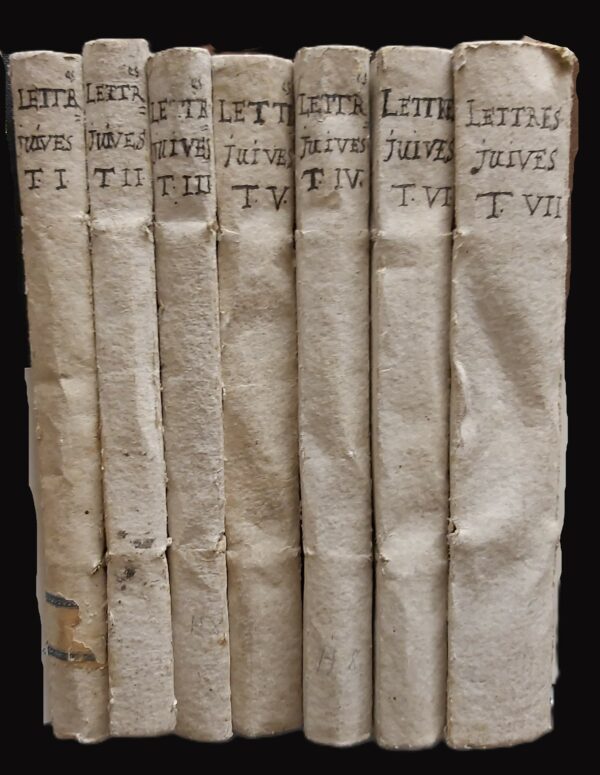 LETTRes
JUIVES
T. I
LETTRes
JUIVES
T II
LETTR
JUIVES
T. III
LETT
JUIVES
T. V.
LETTRes
JUIVES
T. IV.
LETTRE
JUIVES
T. VI
LETTRES
JUIVES
T. VII